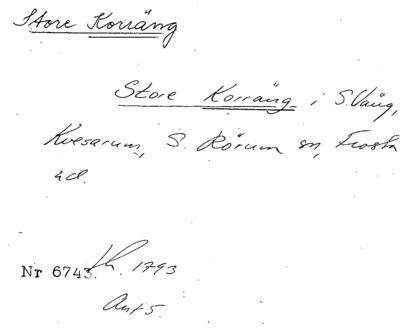 Store Korräng
Store Korräng i S. Vång,
Kvesarum, S. Rörum sn, Frosta
hd.
Nr 6743. Lk. 1793
Ant 5.